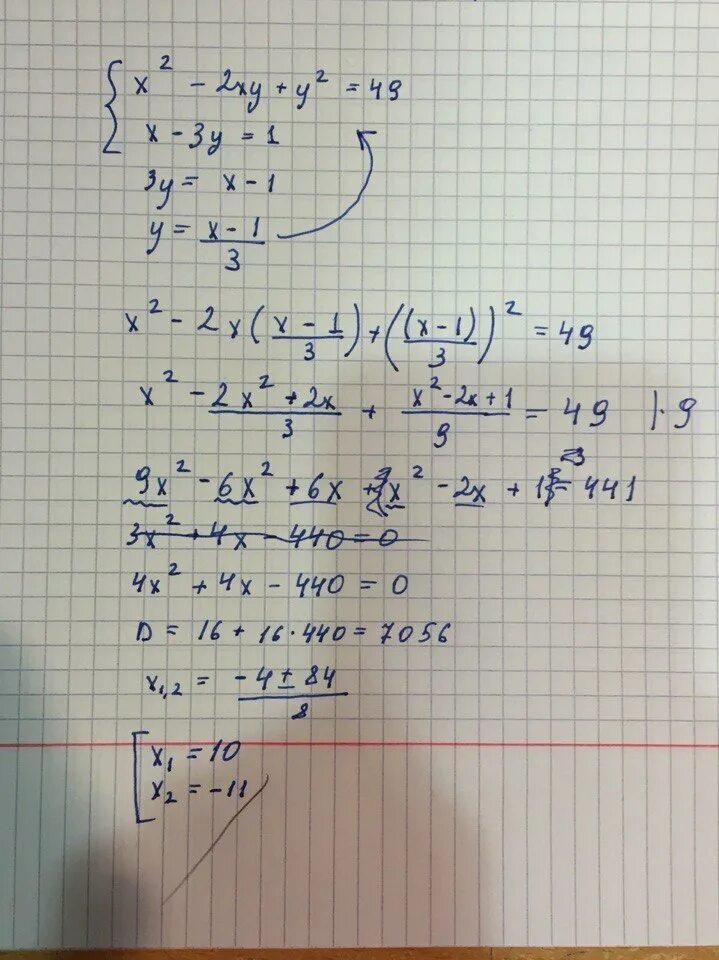 { x² - 2xy + y² = 49
x - 3y = 1
3y = x - 1
y = (x - 1)/3
x² - 2x((x - 1)/3) + ((x - 1)/3)² = 49
x² - (2x² + 2x)/3 + (x² - 2x + 1)/9 = 49 | · 9
9x² - 6x² + 6x + x² - 2x + 1 = 441
3x² + 4x - 440 = 0
4x² + 4x - 440 = 0
D = 16 + 16 · 440 = 7056
x₁,₂ = (-4 ± 84)/8
[ x₁ = 10
x₂ = -11